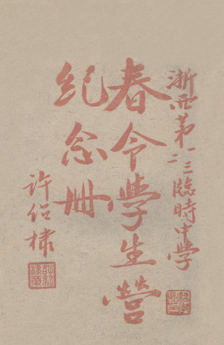 浙西第一二三臨時中學
春令學生營
紀念冊
許紹棣